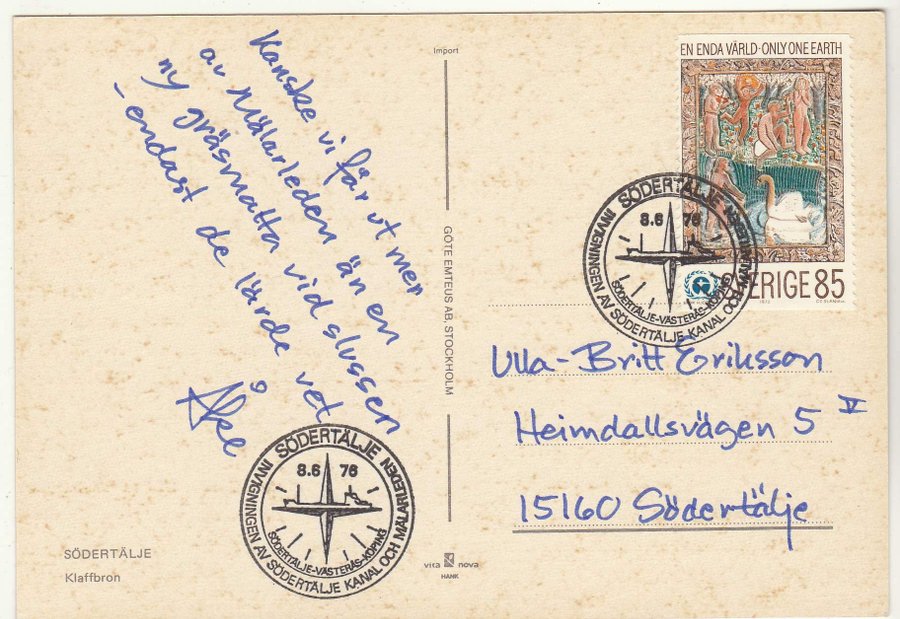 Kanske vi får ut mer
av Mälarleden än en
ny gräsmatta vid slussen
- endast de lärde vet
Åke
SÖDERTÄLJE
8.6 76
SÖDERTÄLJE-VÄSTERÅS-KÖPING
INVIGNINGEN AV SÖDERTÄLJE KANAL OCH MÄLARLEDEN
SÖDERTÄLJE
Klaffbron
Import
GÖTE EMTEUS AB, STOCKHOLM
vita nova
HANK
EN ENDA VÄRLD · ONLY ONE EARTH
SVERIGE 85
SÖDERTÄLJE
8.6 76
SÖDERTÄLJE-VÄSTERÅS-KÖPING
INVIGNINGEN AV SÖDERTÄLJE KANAL OCH MÄLARLEDEN
Ulla-Britt Eriksson
Heimdallsvägen 5 V
15160 Södertälje